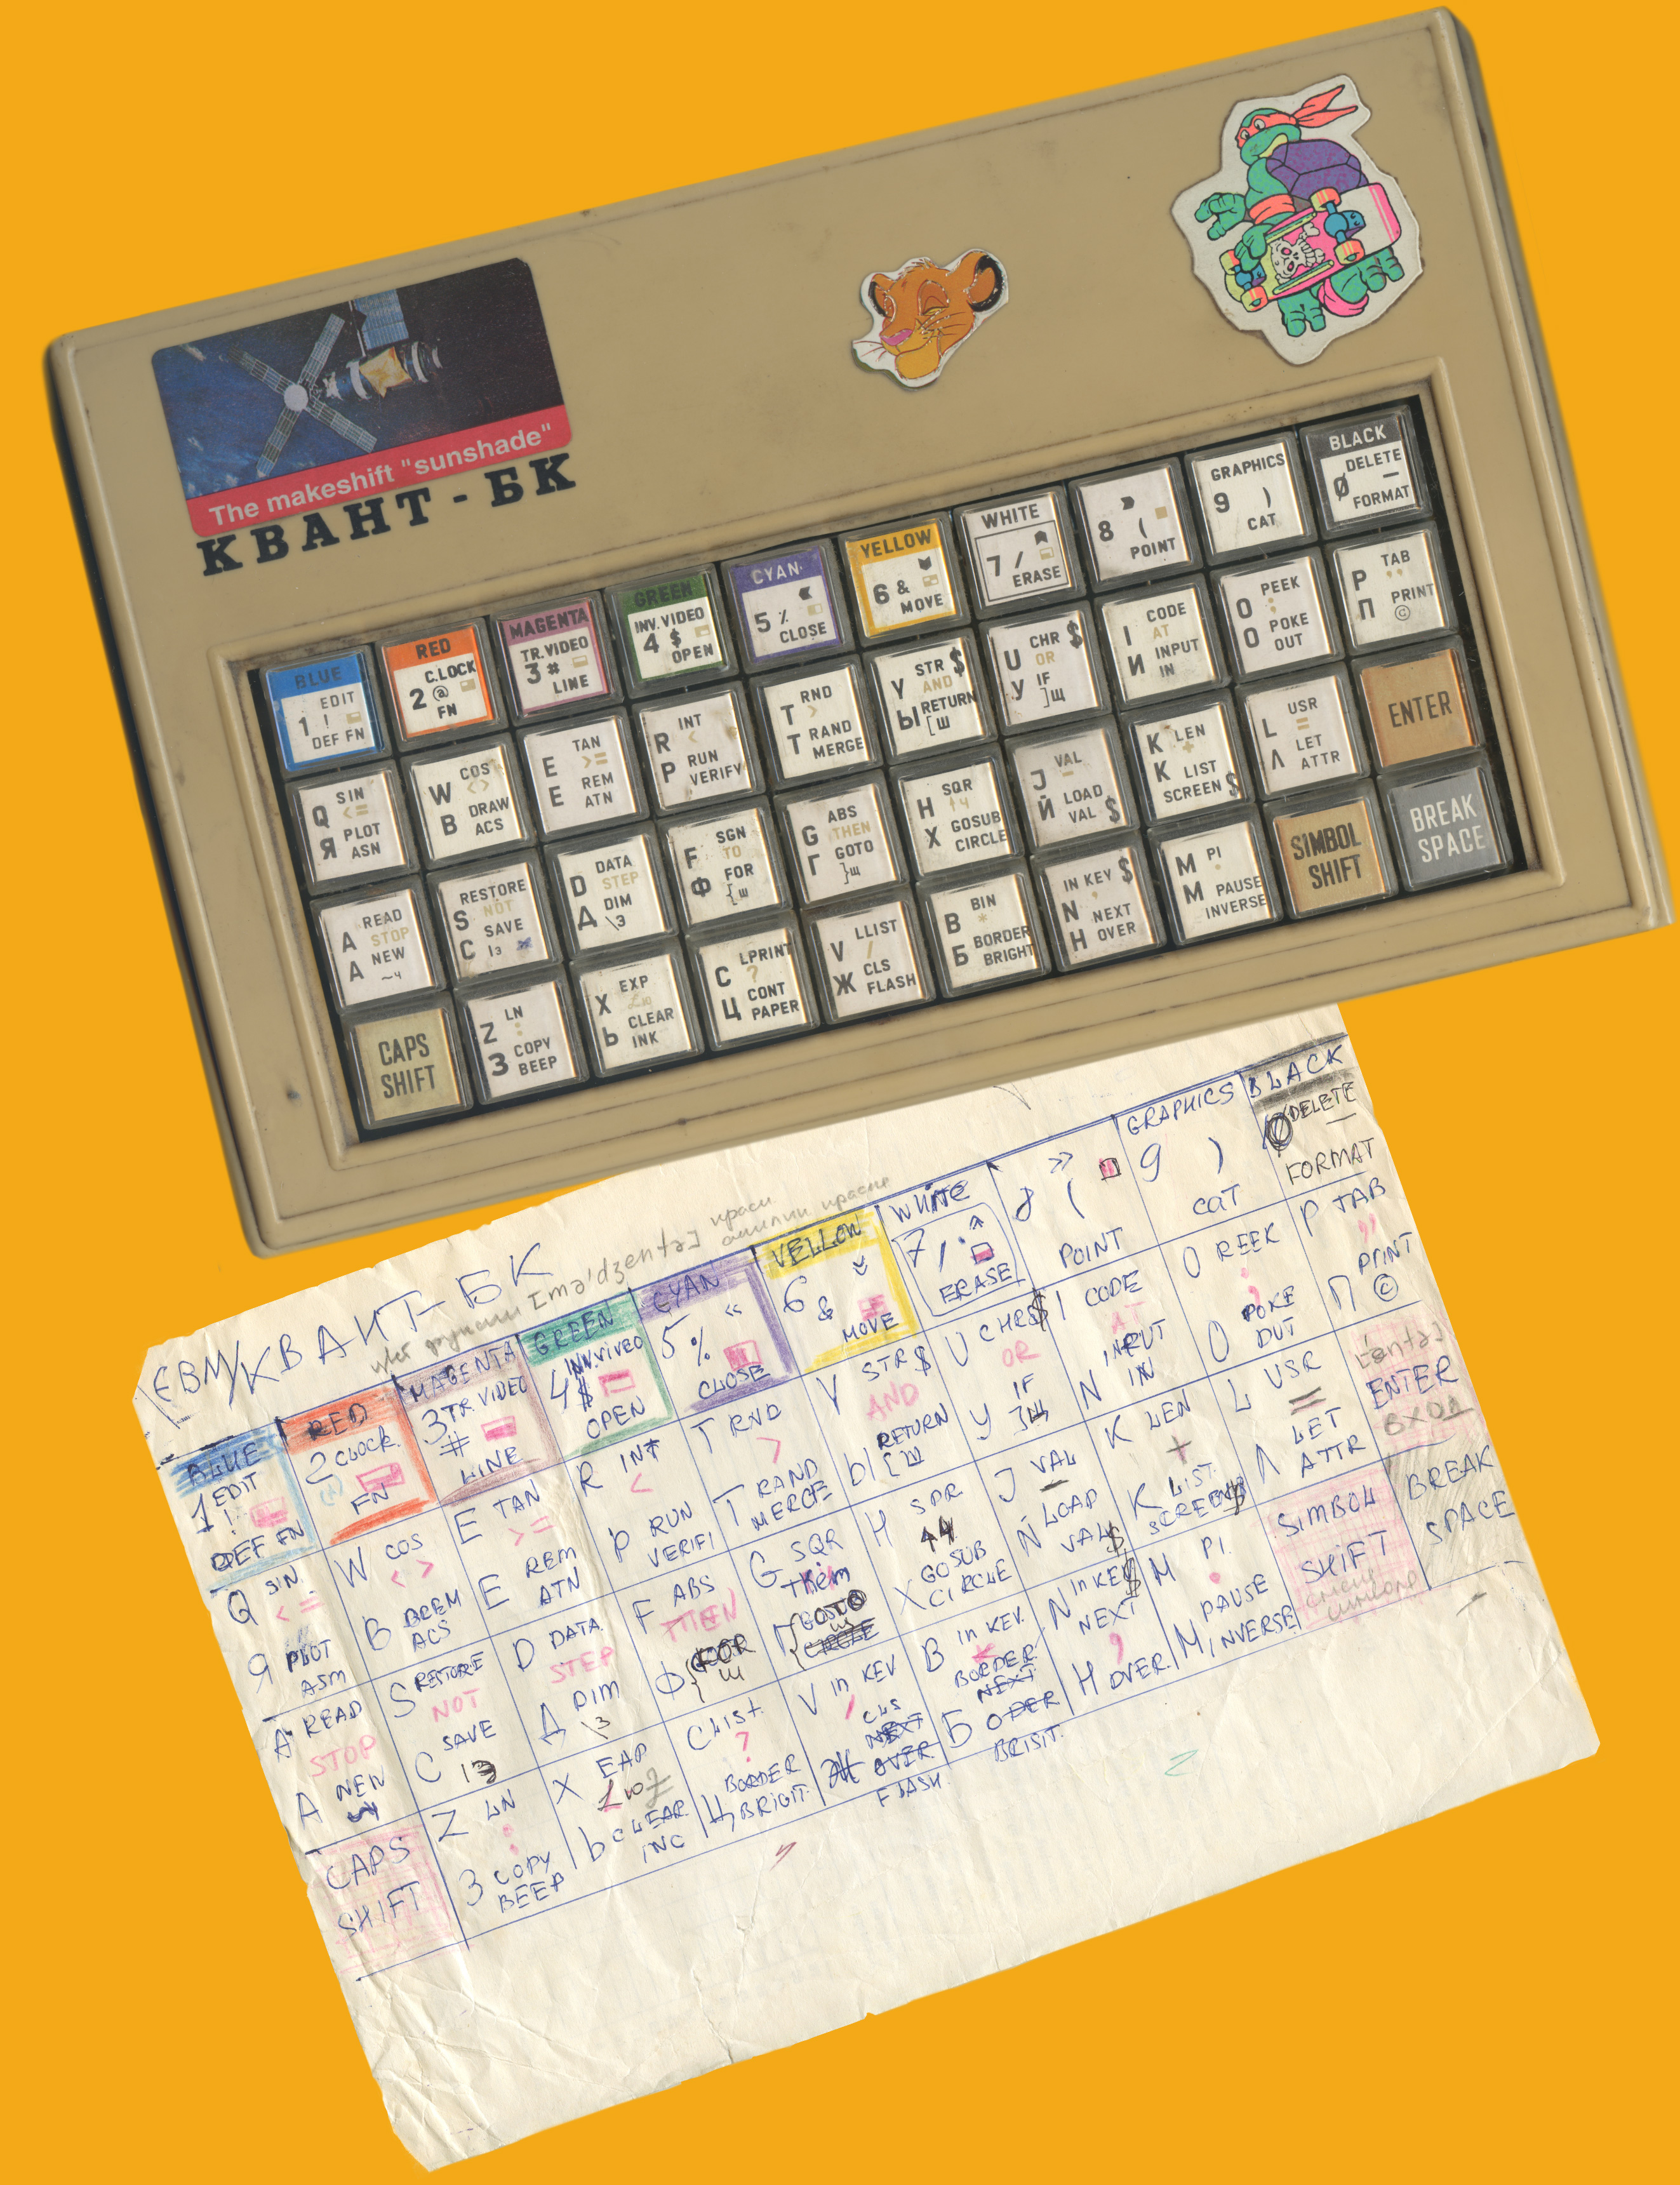 The makeshift "sunshade"
КВАНТ-БК
BLUE
EDIT
1 !
DEF FN
RED
C.LOCK
2 @
FN
MAGENTA
TR.VIDEO
3 #
LINE
GREEN
INV.VIDEO
4 $
OPEN
CYAN
5 %
CLOSE
YELLOW
6 &
MOVE
WHITE
7 /
ERASE
8 (
POINT
GRAPHICS
9 )
CAT
BLACK
DELETE
Ø _
FORMAT
Q SIN
<=
Я PLOT
ASN
W COS
<>
В DRAW
ACS
E TAN
>=
Е REM
ATN
R INT
<
Р RUN
VERIFY
T RND
>
Т RAND
MERGE
Y STR $
AND
Ы RETURN
[ Ш
U CHR $
OR
У IF
] Щ
I CODE
AT
И INPUT
IN
O PEEK
;
О POKE
OUT
P TAB
"
П PRINT
©
A READ
STOP
А NEW
~Ч
S RESTORE
NOT
С SAVE
|Э
D DATA
STEP
Д DIM
\Э
F SGN
TO
Ф FOR
{Ш
G ABS
THEN
Г GOTO
}Щ
H SQR
↑Ч
Х GOSUB
CIRCLE
J VAL
−
Й LOAD
VAL $
K LEN
+
К LIST
SCREEN $
L USR
=
Л LET
ATTR
ENTER
CAPS
SHIFT
Z LN
:
З COPY
BEEP
X EXP
£Ю
Ь CLEAR
INK
C LPRINT
?
Ц CONT
PAPER
V LLIST
/
Ж CLS
FLASH
B BIN
*
Б BORDER
BRIGHT
N IN KEY $
,
Н NEXT
OVER
M PI
.
М PAUSE
INVERSE
SIMBOL
SHIFT
BREAK
SPACE
ЕВМ/КВАНТ-БК
BLUE
1 EDIT
!
DEF FN
RED
2 CLOCK
FN
MAGENTA
3 TR.VIDEO
#
LINE
GREEN
INV.VIVEO
4 $
OPEN
CYAN
5 % «
CLOSE
YELLOW
6 &
MOVE
WHITE
7 /
ERASE
8 ( »
POINT
GRAPHICS
9 )
CAT
BLACK
Ø DELETE
—
FORMAT
Q SIN
<=
Я PLOT
ASM
W COS
< >
В
ACS
E TAN
>=
E REM
ATN
R INT
<
Р RUN
VERIFI
T RND
>
T RAND
MERGE
Y STR $
AND
Ы RETURN
[ Ш
U CHR $
OR
У IF
] Щ
I CODE
AT
N INPUT
IN
O REEK
;
O POKE
OUT
P TAB
"
П PRINT
©
A READ
STOP
A NEW
S RESTORE
NOT
C SAVE
D DATA
STEP
Д DIM
\Э
F ABS
THEN
Ф FOR
{ Ш
G SQR
THEN
Г GOTO
CIRCLE
H
GOSUB
Х CIRCLE
J VAL
—
Й LOAD
VAL $
K LEN
+
K LIST
SCREEN $
L USR
=
Л LET
ATTR
ENTER
ВХОД
CAPS
SHIFT
Z LN
:
З COPY
BEEP
X EAP
b CLEAR
INC
C LIST
?
BORDER
Ц BRIGIT
V IN KEY
/
CLS
NEXT
Ж OVER
FLASH
B IN KEY
*
BORDER
NEXT
Б
BRISIT.
N IN KEY $
NEXT
,
H OVER
M PI
.
PAUSE
M INVERSE
SIMBOL
SHIFT
BREAK
SPACE